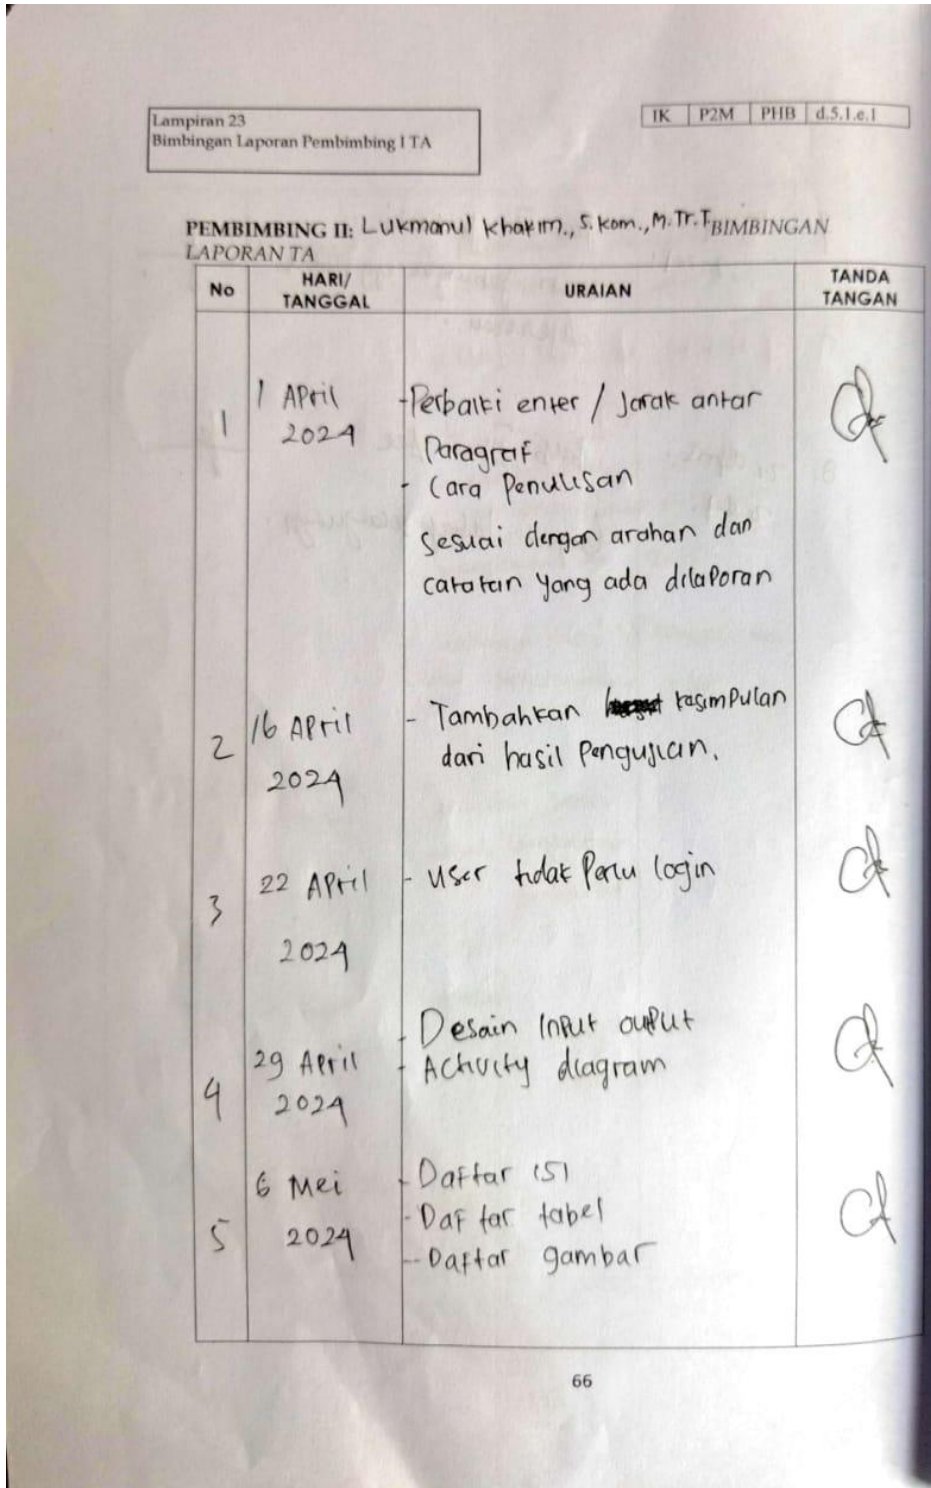 Lampiran 23
Bimbingan Laporan Pembimbing I TA
IK P2M PHB d.5.1.e.1
PEMBIMBING II: Lukmanul Khakim., S.Kom., M.Tr.T BIMBINGAN
LAPORAN TA
No HARI/ TANGGAL URAIAN TANDA TANGAN
1 1 April 2024
-Perbaiki enter / Jarak antar
Paragraf
- Cara Penulisan
Sesuai dengan arahan dan
catatan yang ada dilaporan
2 16 April 2024
- Tambahkan kesimpulan
dari hasil Pengujian.
3 22 April 2024
- User tidak Perlu login
4 29 April 2024
- Desain Input output
- Activity diagram
5 6 Mei 2024
- Daftar isi
- Daftar tabel
- Daftar gambar
66